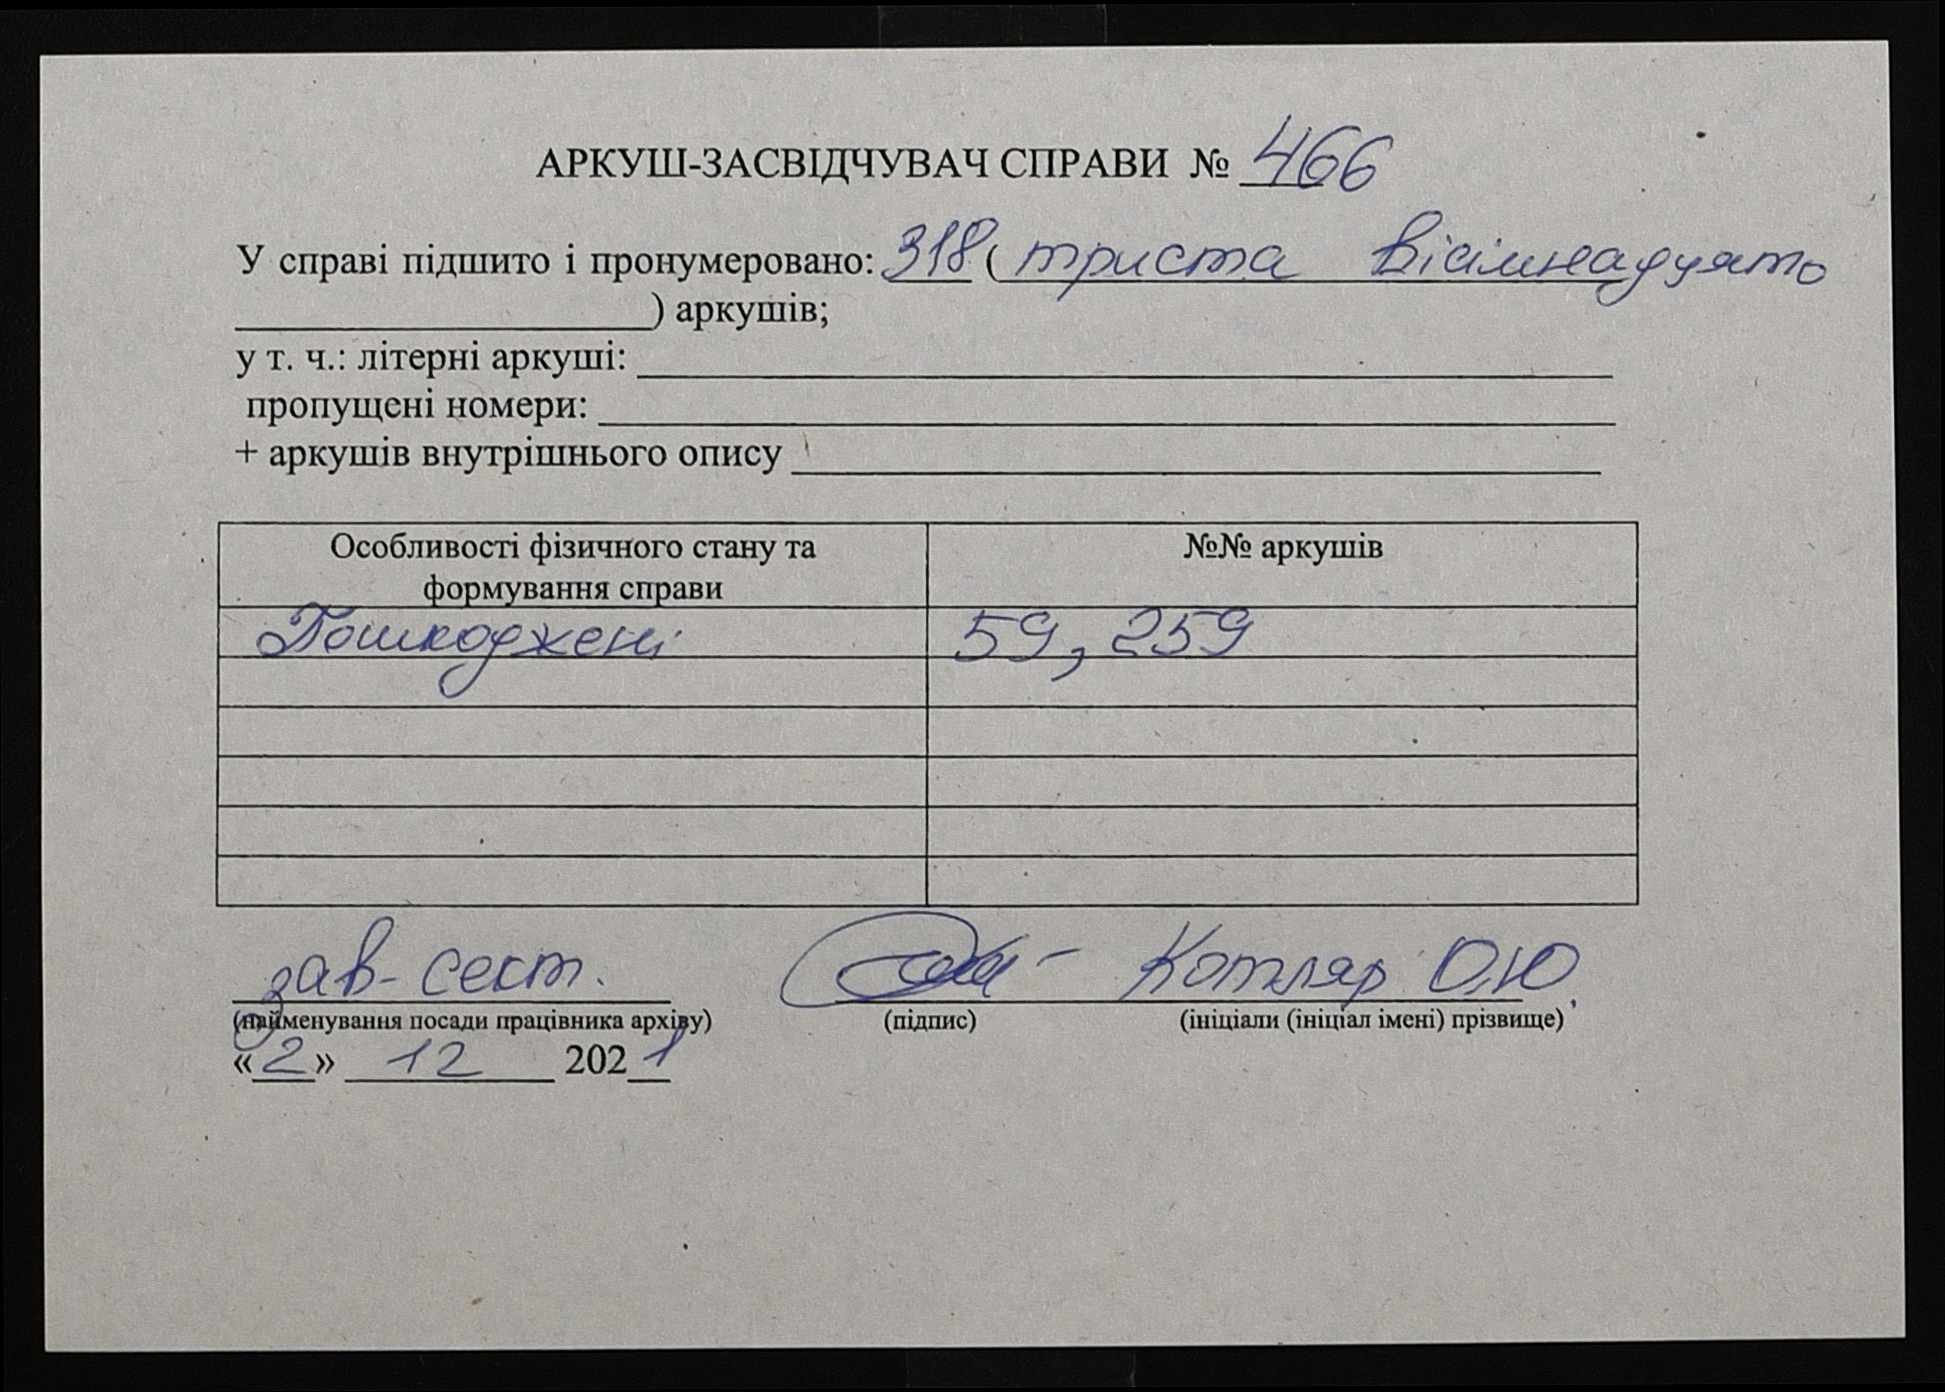 АРКУШ-ЗАСВІДЧУВАЧ СПРАВИ № 466
У справі підшито і пронумеровано: 318 (триста вісімнадцять
) аркушів;
у т. ч.: літерні аркуші:
пропущені номери:
+ аркушів внутрішнього опису
Особливості фізичного стану та №№ аркушів
формування справи
Пошкоджені 59, 259
зав. сект. Котляр О.Ю.
(найменування посади працівника архіву) (підпис) (ініціали (ініціал імені) прізвище)
«2» 12 2021